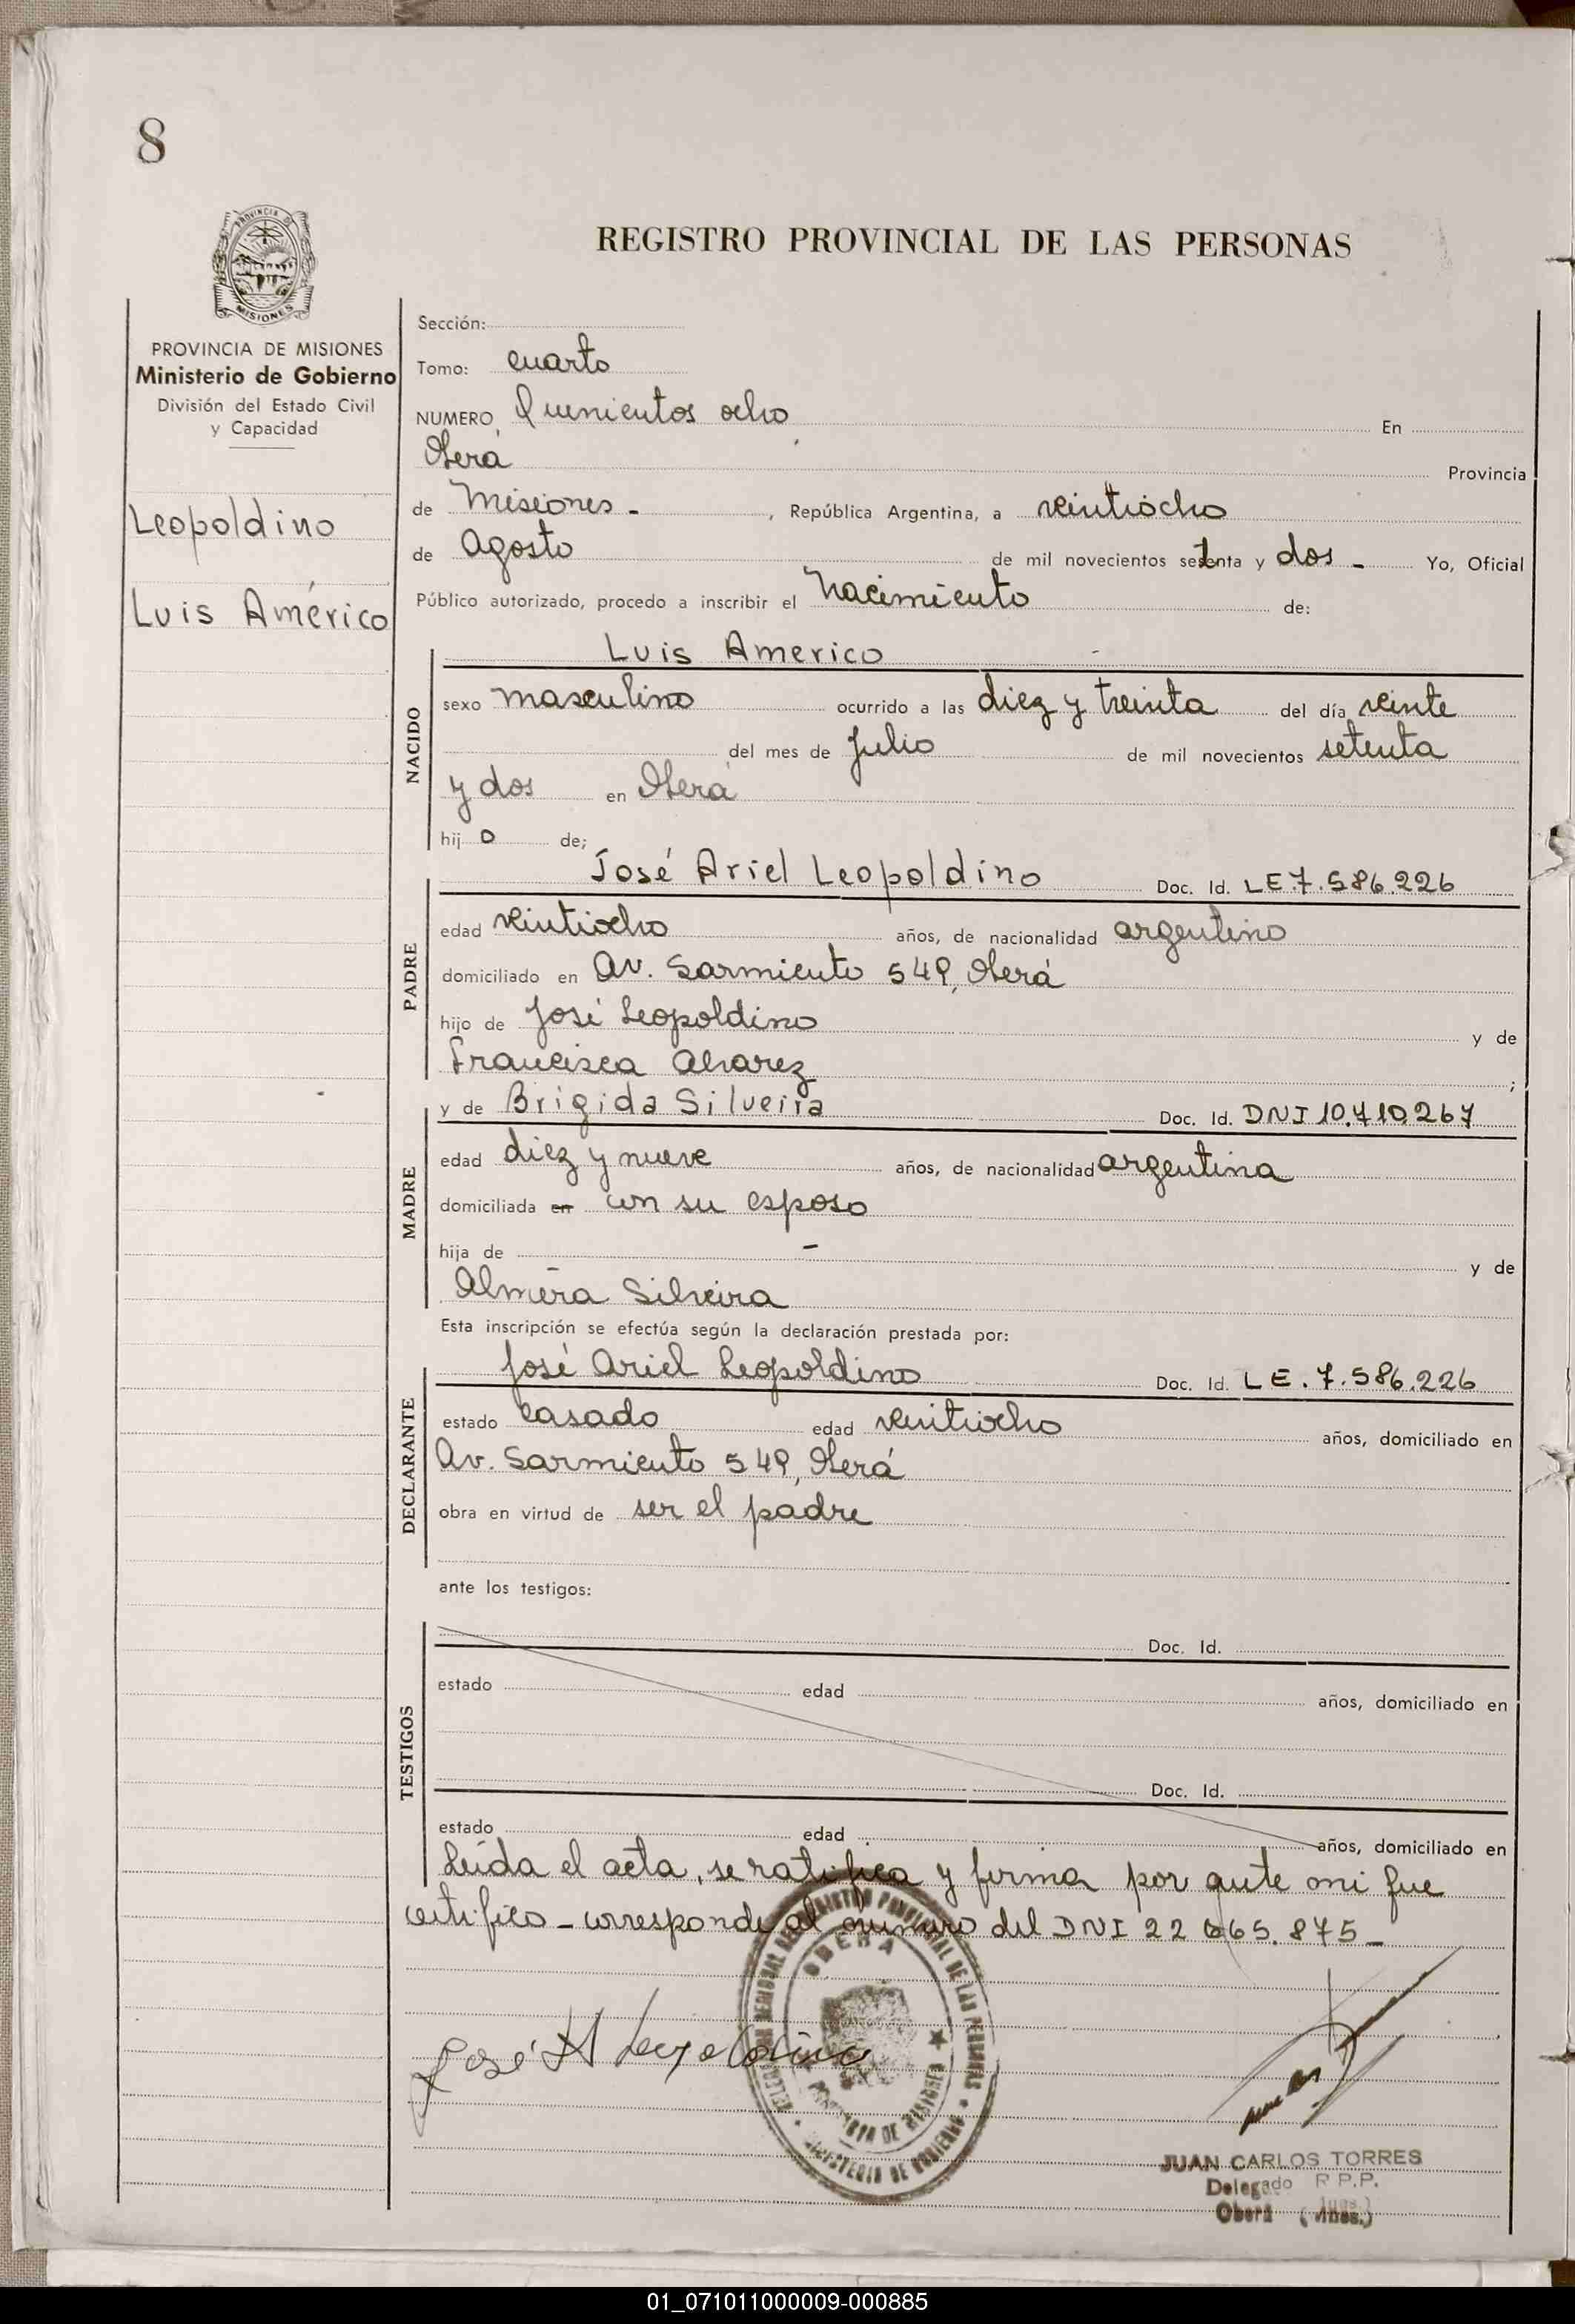 8
PROVINCIA DE
MISIONES
REGISTRO PROVINCIAL DE LAS PERSONAS
PROVINCIA DE MISIONES
Ministerio de Gobierno
División del Estado Civil
y Capacidad
Leopoldino
Luis Américo
Sección:
Tomo: cuarto
NUMERO Quinientos ocho En
Oberá Provincia
de Misiones - , República Argentina, a veintiocho
de Agosto de mil novecientos setenta y dos - Yo, Oficial
Público autorizado, procedo a inscribir el nacimiento de:
Luis Americo
NACIDO
sexo masculino ocurrido a las diez y treinta del día veinte
del mes de Julio de mil novecientos setenta
y dos en Oberá
hij o de;
José Ariel Leopoldino Doc. Id. LE 7.586.226
PADRE
edad veintiocho años, de nacionalidad argentino
domiciliado en Av. Sarmiento 549, Oberá
hijo de José Leopoldino y de
Francisca Alvarez ;
y de Brigida Silveira Doc. Id. DNI 10.710.267
MADRE
edad diez y nueve años, de nacionalidad argentina
domiciliada en con su esposo
hija de - y de
Almera Silveira
Esta inscripción se efectúa según la declaración prestada por:
José Ariel Leopoldino Doc. Id. LE. 7.586.226
DECLARANTE
estado casado edad veintiocho años, domiciliado en
Av. Sarmiento 549, Oberá
obra en virtud de ser el padre
ante los testigos:
Doc. Id.
TESTIGOS
estado edad años, domiciliado en
Doc. Id.
estado edad años, domiciliado en
Leída el acta, se ratifica y firma por ante mi que
certifico - corresponde al número del DNI 22 665.875 -
José A Leopoldino
OBERA
PROVINCIA DE MISIONES
MINISTERIO DE GOBIERNO
JUAN CARLOS TORRES
Delegado R P.P.
Oberá (Mnes.)
01_071011000009-000885